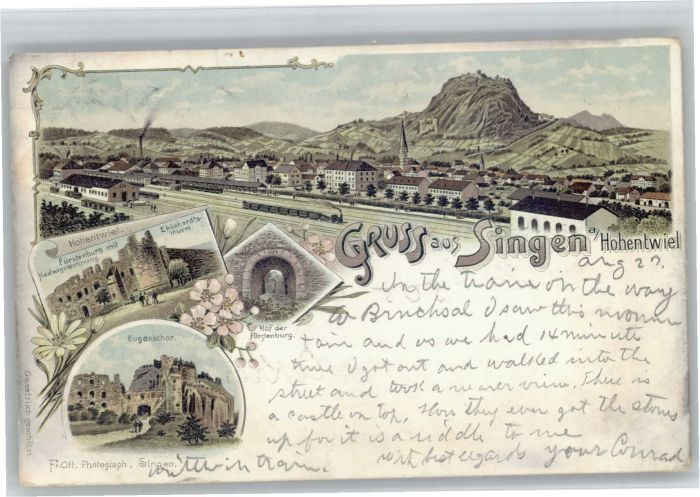 Gruss aus Singen a/Hohentwiel
Hohentwiel.
Fürstenburg mit
Hadwigswohnung
Ekkehardts-
thurm.
Hof der
Fürstenburg.
Eugensthor.
Gesetzlich geschützt.
Fr. Ott, Photograph, Singen.
Aug 27.
In the train on the way
to Bruchsal I saw this
and as we had 14 minute
time I got out and walked into the
street and took a nearer view. There is
a castle on top. How they ever got the stones
up for it is a riddle to me
with best regards your Conrad
written in train.